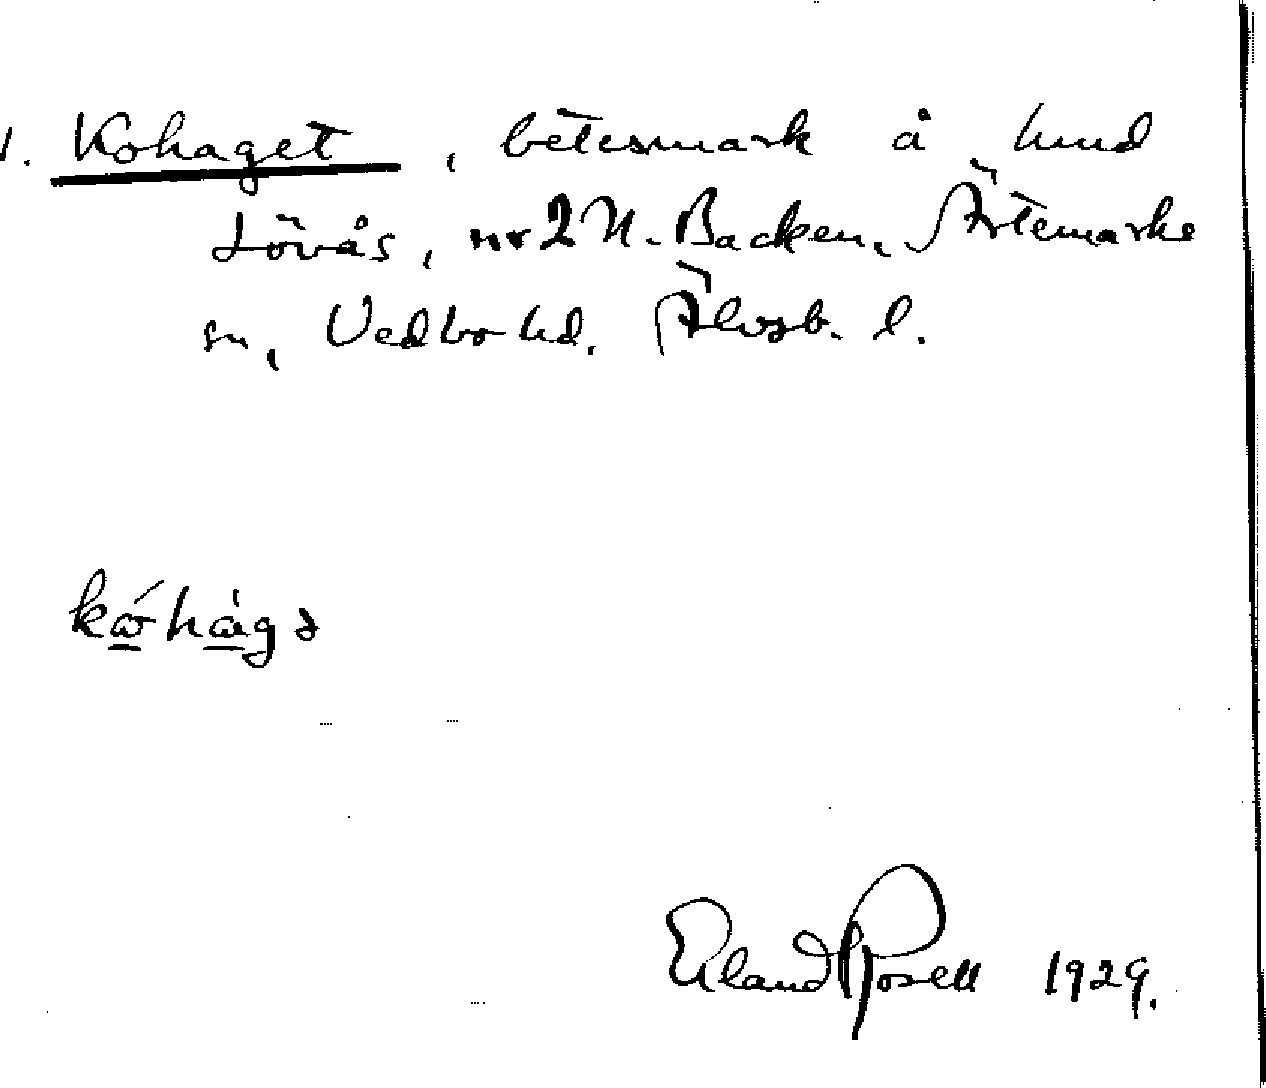 1. Kohaget, betesmark å hmd
Lövås, nr 2 N. Backen, Ärtemarks
sn, Vedbo hd. Älvsb. l.
kώhàgə
Erland Rosell 1929.